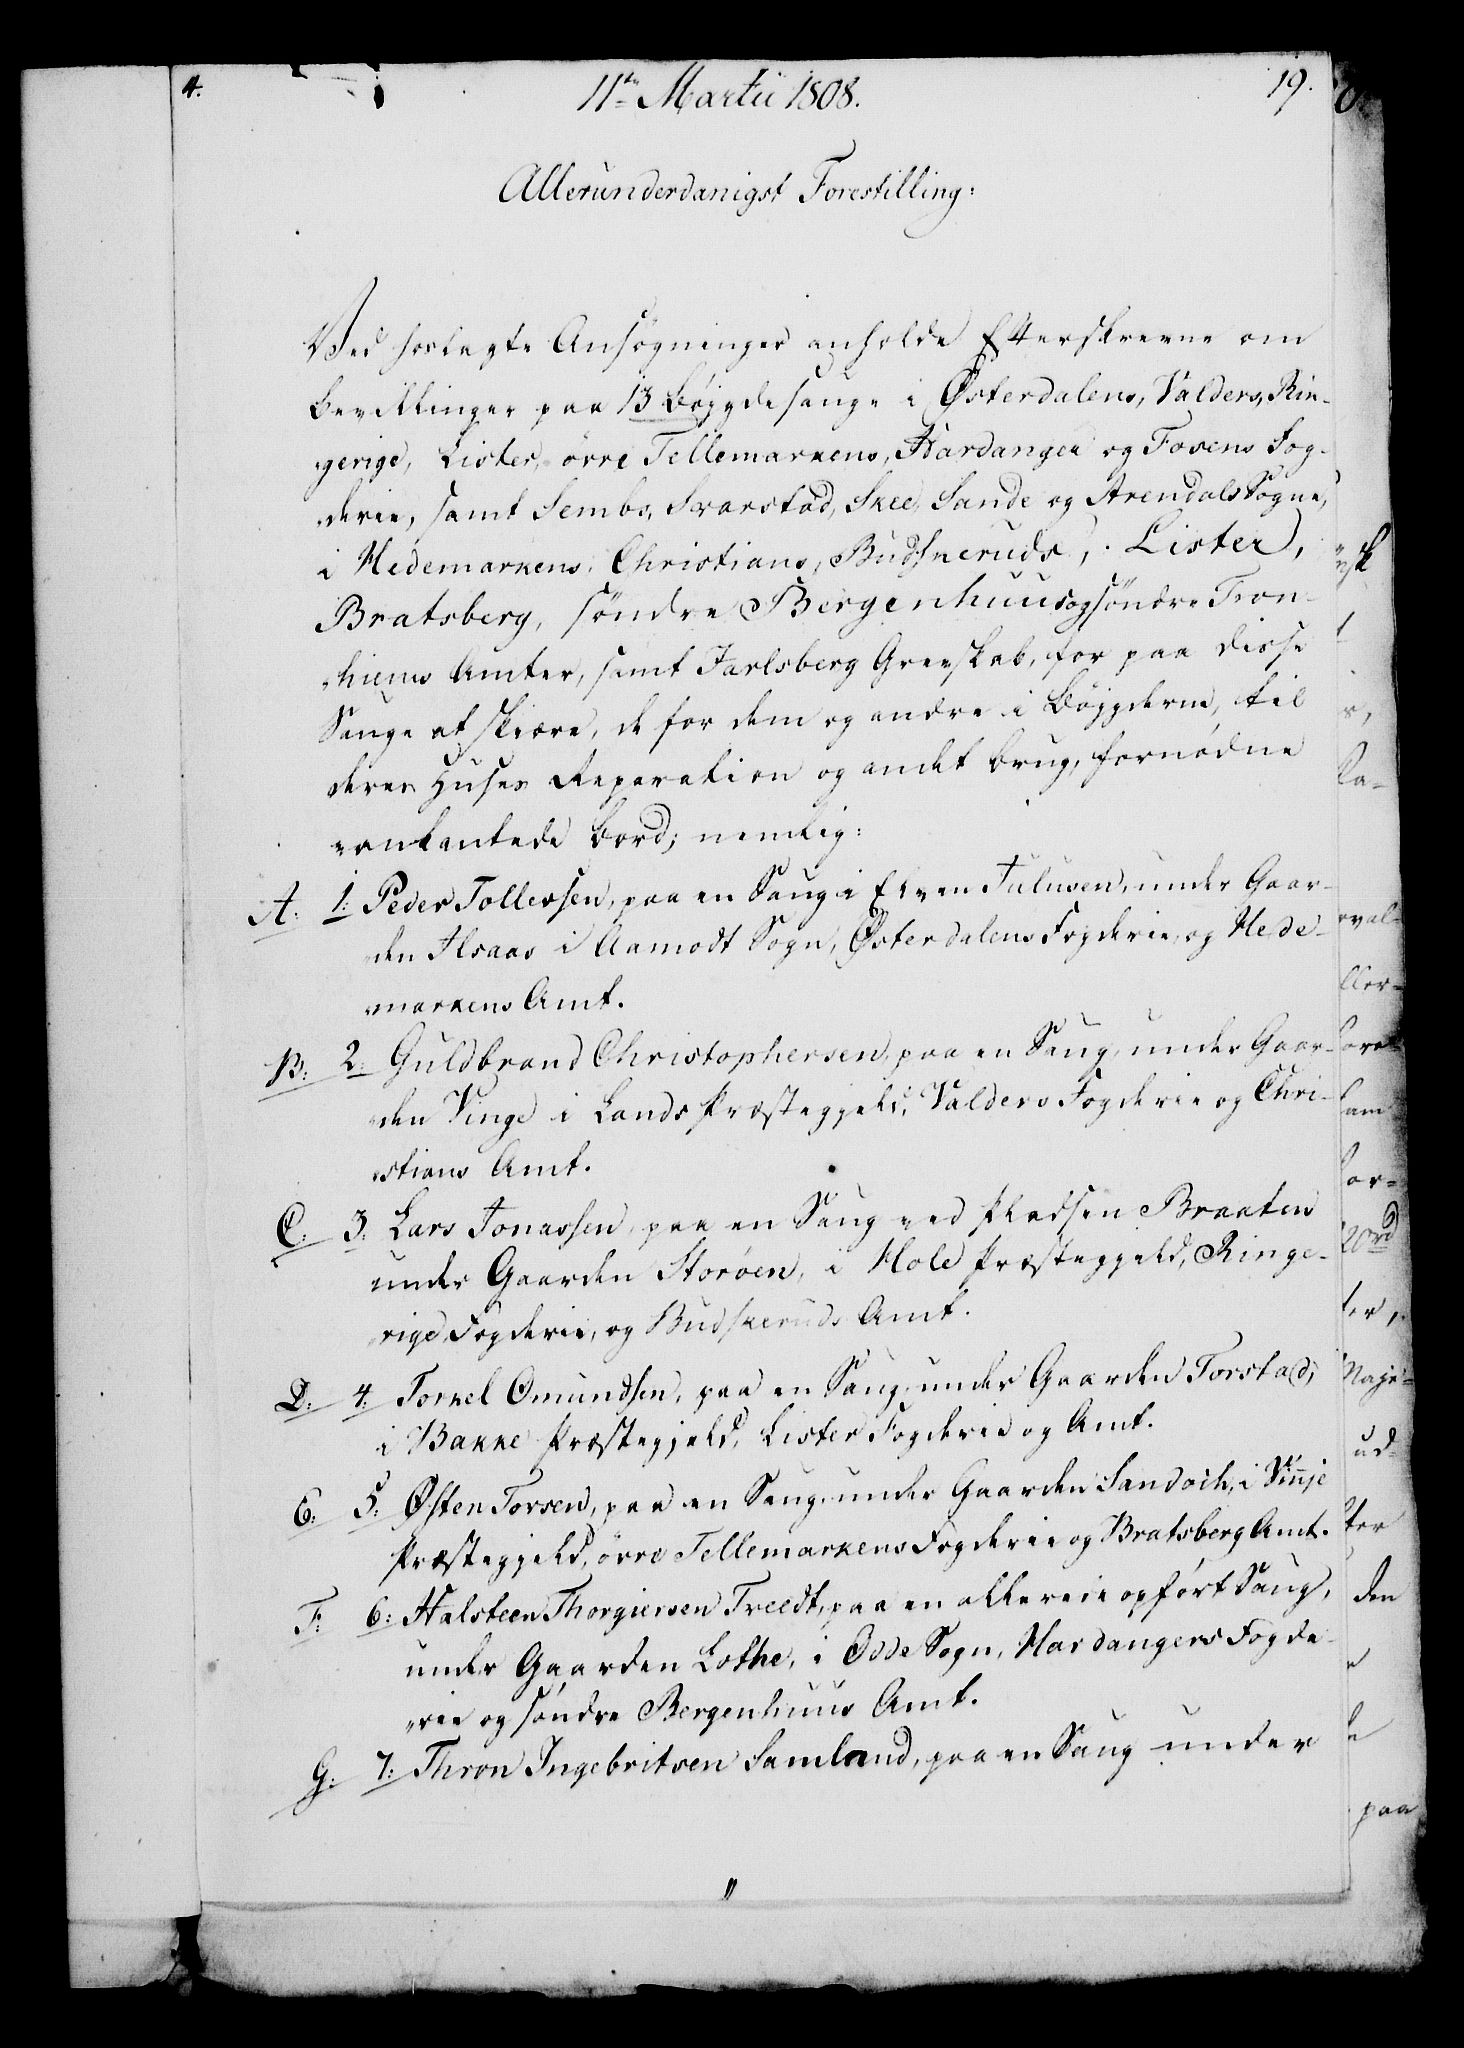 4.
11te Martii 1808.
19.
Allerunderdanigst Forestilling:
Ved hoslagte Ansøgninger anholde Efterskrevne om
Bevillinger paa 13 Bøjgdesauge i Østerdalens, Valders, Rin-
gerige, Lister, øvre Tellemarkens, Hardanger og Fosens Fog-
derie, samt Sembs, Svarstad, Skee, Sande og Arendals Sogne,
i Hedemarkens, Christians, Budskeruds, Lister,
Bratsberg, søndre Bergenhuus og søndre Tron-
hiems Amter, samt Jarlsberg Grevskab, for paa disse
Sauge at skiære, de for dem og andre i Bøjgderne, til
deres Huses Reparation og andet brug, fornødne
vankantede Bord; nemlig:
A. 1: Peder Tollevsen, paa en Saug i Elven Julusen, under Gaar-
den Ilsaas i Aamodt Sogn, Østerdalens Fogderie, og Hede-
markens Amt.
B: 2: Guldbrand Christophersen, paa en Saug, under Gaar-
den Vinge i Lands Præstegjeld, Valders Fogderie og Chri-
stians Amt.
C: 3: Lars Jonassen, paa en Saug ved Pladsen Braaten
under Gaarden Storøen, i Hole Præstegjeld, Ringe-
rige Fogderie, og Budskeruds Amt.
D: 4: Torkel Omundsen, paa en Saug under Gaarden Torstad,
i Bakke Præstegjeld, Lister Fogderie og Amt.
E: 5: Østen Torsen, paa en Saug under Gaarden Sandoch, i Vinje
Præstegjeld, øvre Tellemarkens Fogderie og Bratsberg Amt.
F: 6: Halsteen Thorgiersen Treedt, paa en allereie opført Saug,
under Gaarden Lothe, i Odde Sogn, Hardangers Fogde-
rie og søndre Bergenhuus Amt.
G: 7: Thron Ingebritsen Samland, paa en Saug under